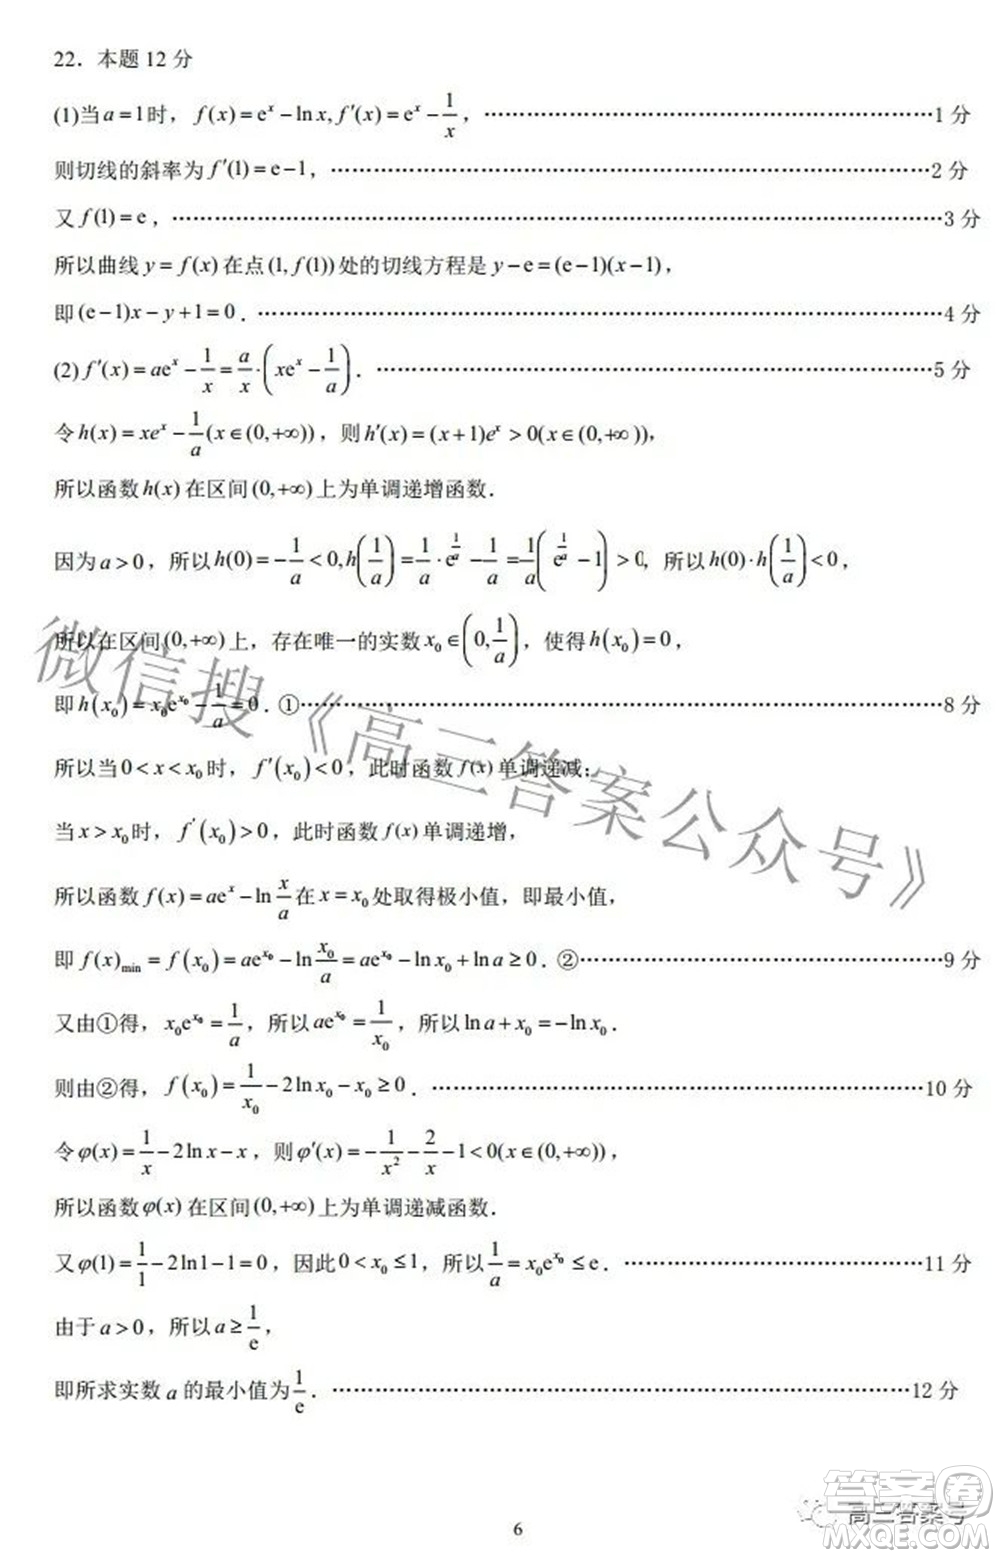 22．本题 12 分
(1)当 a=1时，f(x)=eˣ−ln x, f′(x)=eˣ−1/x，……………………1 分
则切线的斜率为 f′(1)=e−1，……………………2 分
又 f(1)=e，……………………3 分
所以曲线 y=f(x) 在点 (1, f(1)) 处的切线方程是 y−e=(e−1)(x−1)，
即 (e−1)x−y+1=0．……………………4 分
(2) f′(x)=aeˣ−1/x=a/x·(xeˣ−1/a)．……………………5 分
令 h(x)=xeˣ−1/a(x∈(0,+∞))，则 h′(x)=(x+1)eˣ>0(x∈(0,+∞))，
所以函数 h(x) 在区间 (0,+∞) 上为单调递增函数．
因为 a>0，所以 h(0)=−1/a<0, h(1/a)=1/a·e^(1/a)−1/a=1/a(e^(1/a)−1)>0，所以 h(0)·h(1/a)<0，
所以在区间 (0,+∞) 上，存在唯一的实数 x₀∈(0,1/a)，使得 h(x₀)=0，
即 h(x₀)=x₀e^(x₀)−1/a=0．①……………………8 分
所以当 0<x<x₀ 时，f′(x₀)<0，此时函数 f(x) 单调递减；
当 x>x₀ 时，f′(x₀)>0，此时函数 f(x) 单调递增，
所以函数 f(x)=aeˣ−ln x/a 在 x=x₀ 处取得极小值，即最小值，
即 f(x)min=f(x₀)=ae^(x₀)−ln x₀/a=ae^(x₀)−ln x₀+ln a≥0．②……………………9 分
又由①得，x₀e^(x₀)=1/a，所以 ae^(x₀)=1/x₀，所以 ln a+x₀=−ln x₀．
则由②得，f(x₀)=1/x₀−2ln x₀−x₀≥0．……………………10 分
令 φ(x)=1/x−2ln x−x，则 φ′(x)=−1/x²−2/x−1<0(x∈(0,+∞))，
所以函数 φ(x) 在区间 (0,+∞) 上为单调递减函数．
又 φ(1)=1/1−2ln1−1=0，因此 0<x₀≤1，所以 1/a=x₀e^(x₀)≤e．……………………11 分
由于 a>0，所以 a≥1/e，
即所求实数 a 的最小值为 1/e．……………………12 分
微信搜《高三答案公众号》
高三答案号
答案圈
MXQE.COM
6